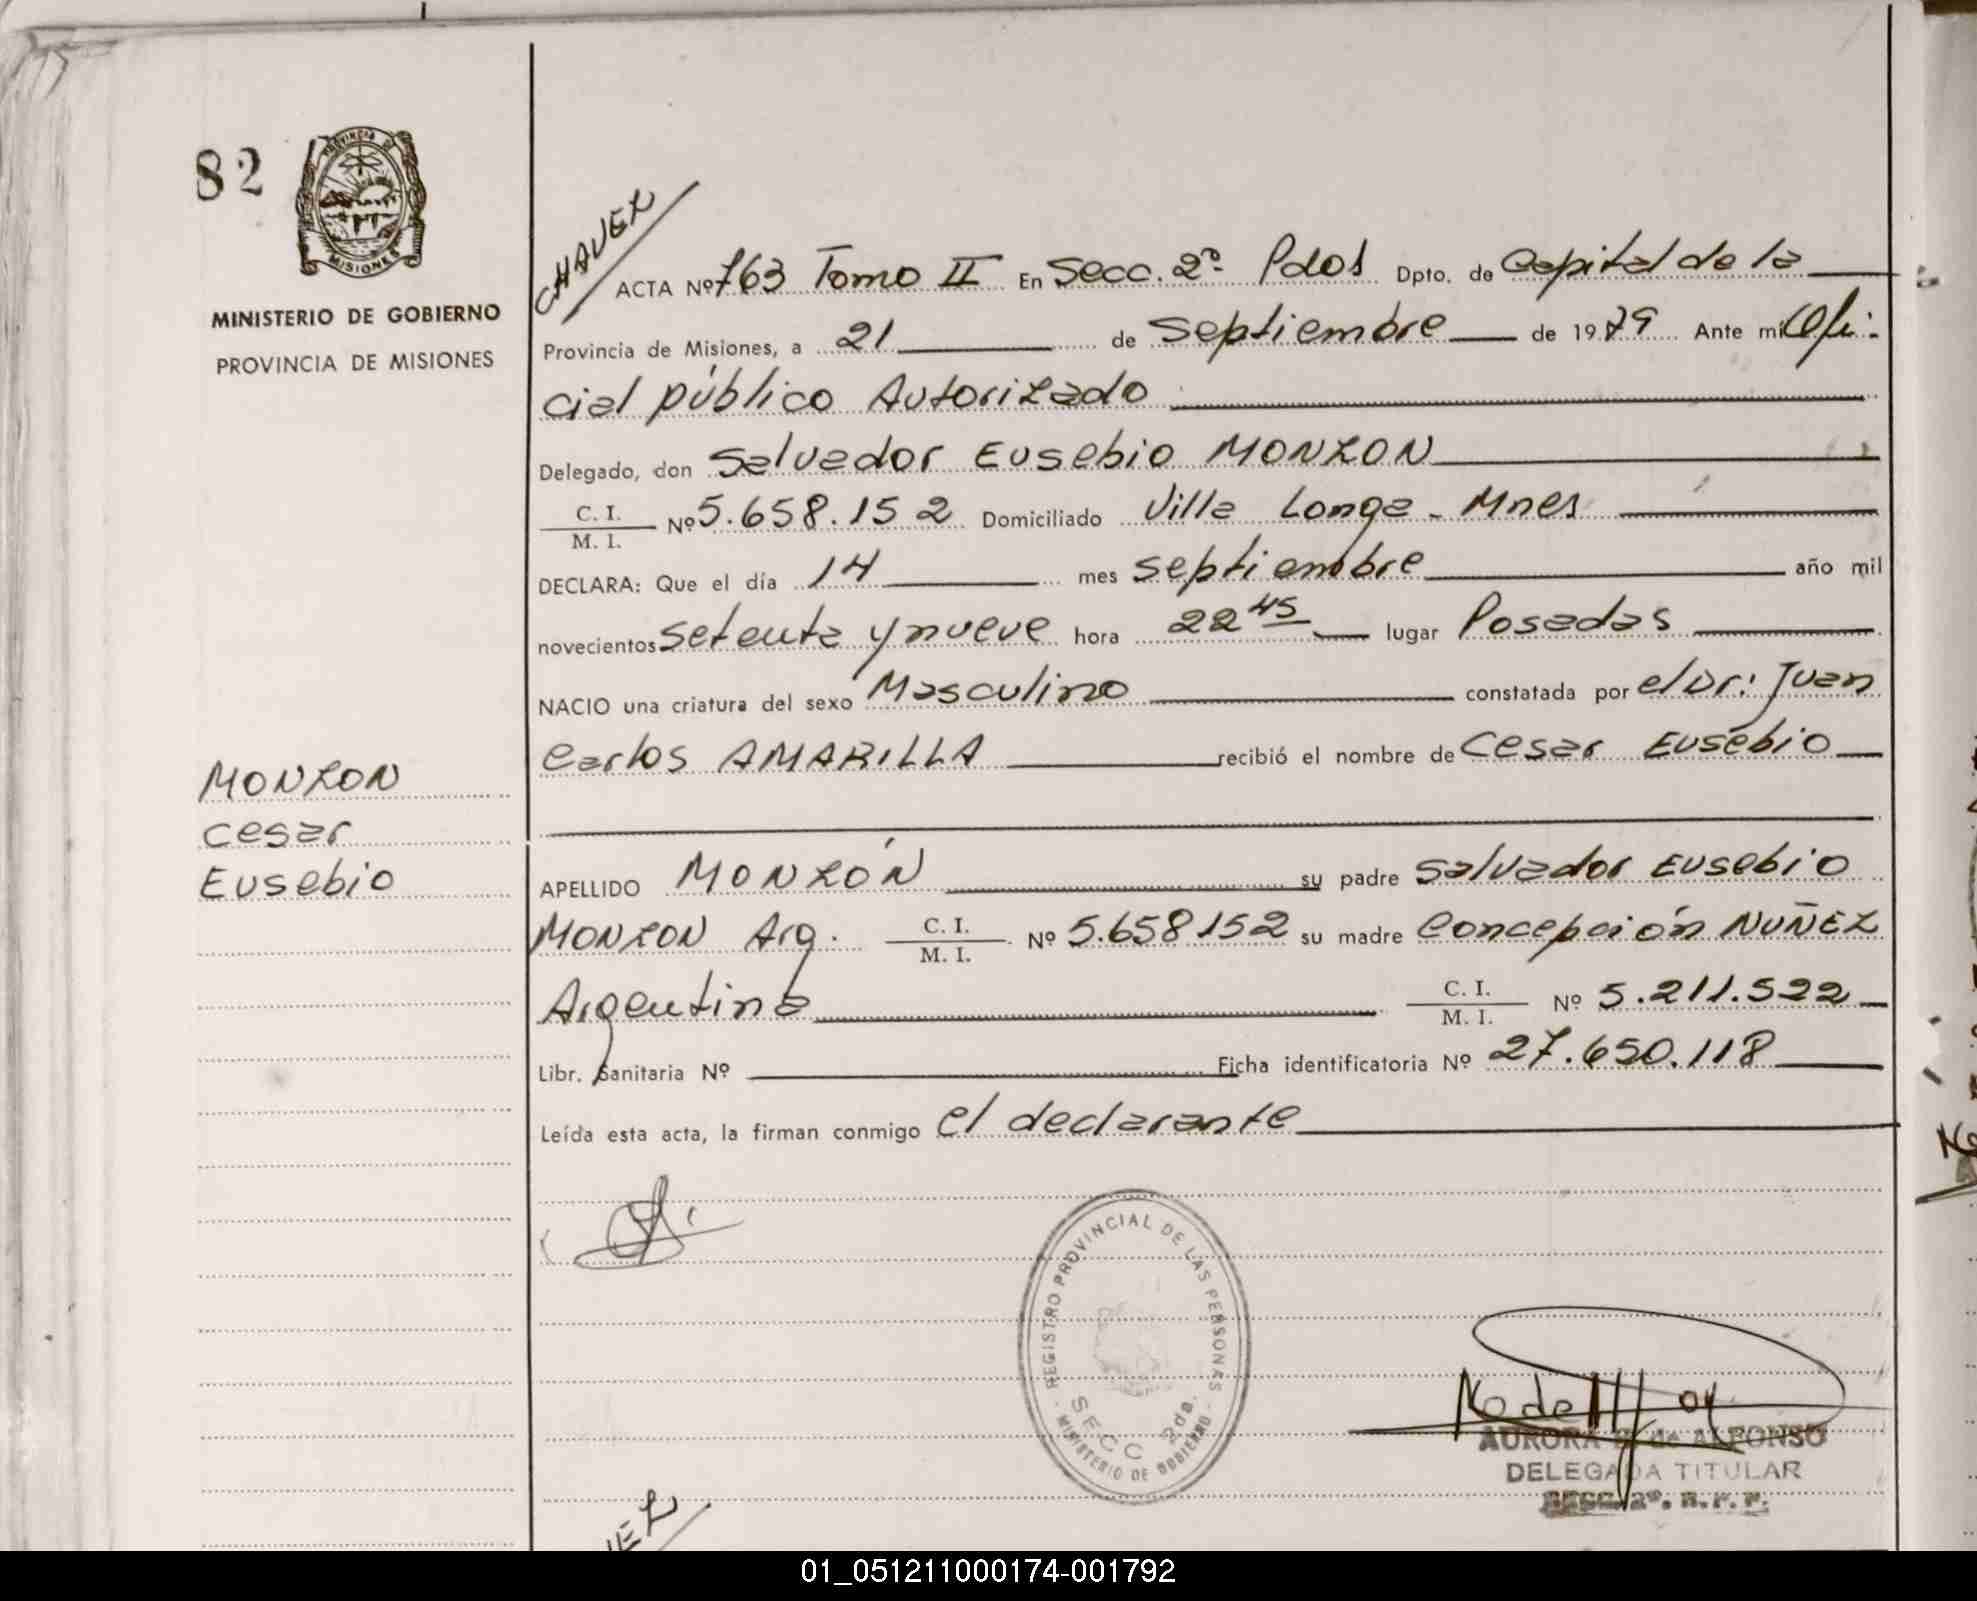 82
PROVINCIA DE
MISIONES
MINISTERIO DE GOBIERNO
PROVINCIA DE MISIONES
MONZON
Cesar
Eusebio
CHAVEZ
ACTA Nº 763 Tomo II En Secc. 2ª Pdas Dpto. de Capital de la
Provincia de Misiones, a 21 de Septiembre de 1979 Ante mi Ofi-
cial público Autorizado
Delegado, don Salvador Eusebio MONZON
C. I.
M. I. Nº 5.658.152 Domiciliado Villa Longa - Mnes
DECLARA: Que el día 14 mes septiembre año mil
novecientos setenta y nueve hora 22 45 lugar Posadas
NACIO una criatura del sexo Masculino constatada por el Dr: Juan
Carlos AMARILLA recibió el nombre de Cesar Eusebio
APELLIDO MONZÓN su padre Salvador Eusebio
MONZON Arg. C. I.
M. I. Nº 5.658.152 su madre Concepción NUÑEZ
Argentina C. I.
M. I. Nº 5.211.522
Libr. Sanitaria Nº Ficha identificatoria Nº 27.650.118
Leída esta acta, la firman conmigo el declarante
REGISTRO PROVINCIAL DE LAS PERSONAS
SECC 2da.
MINISTERIO DE GOBIERNO
AURORA de ALFONSO
DELEGADA TITULAR
SECC. 2ª. R. P. P.
01_051211000174-001792